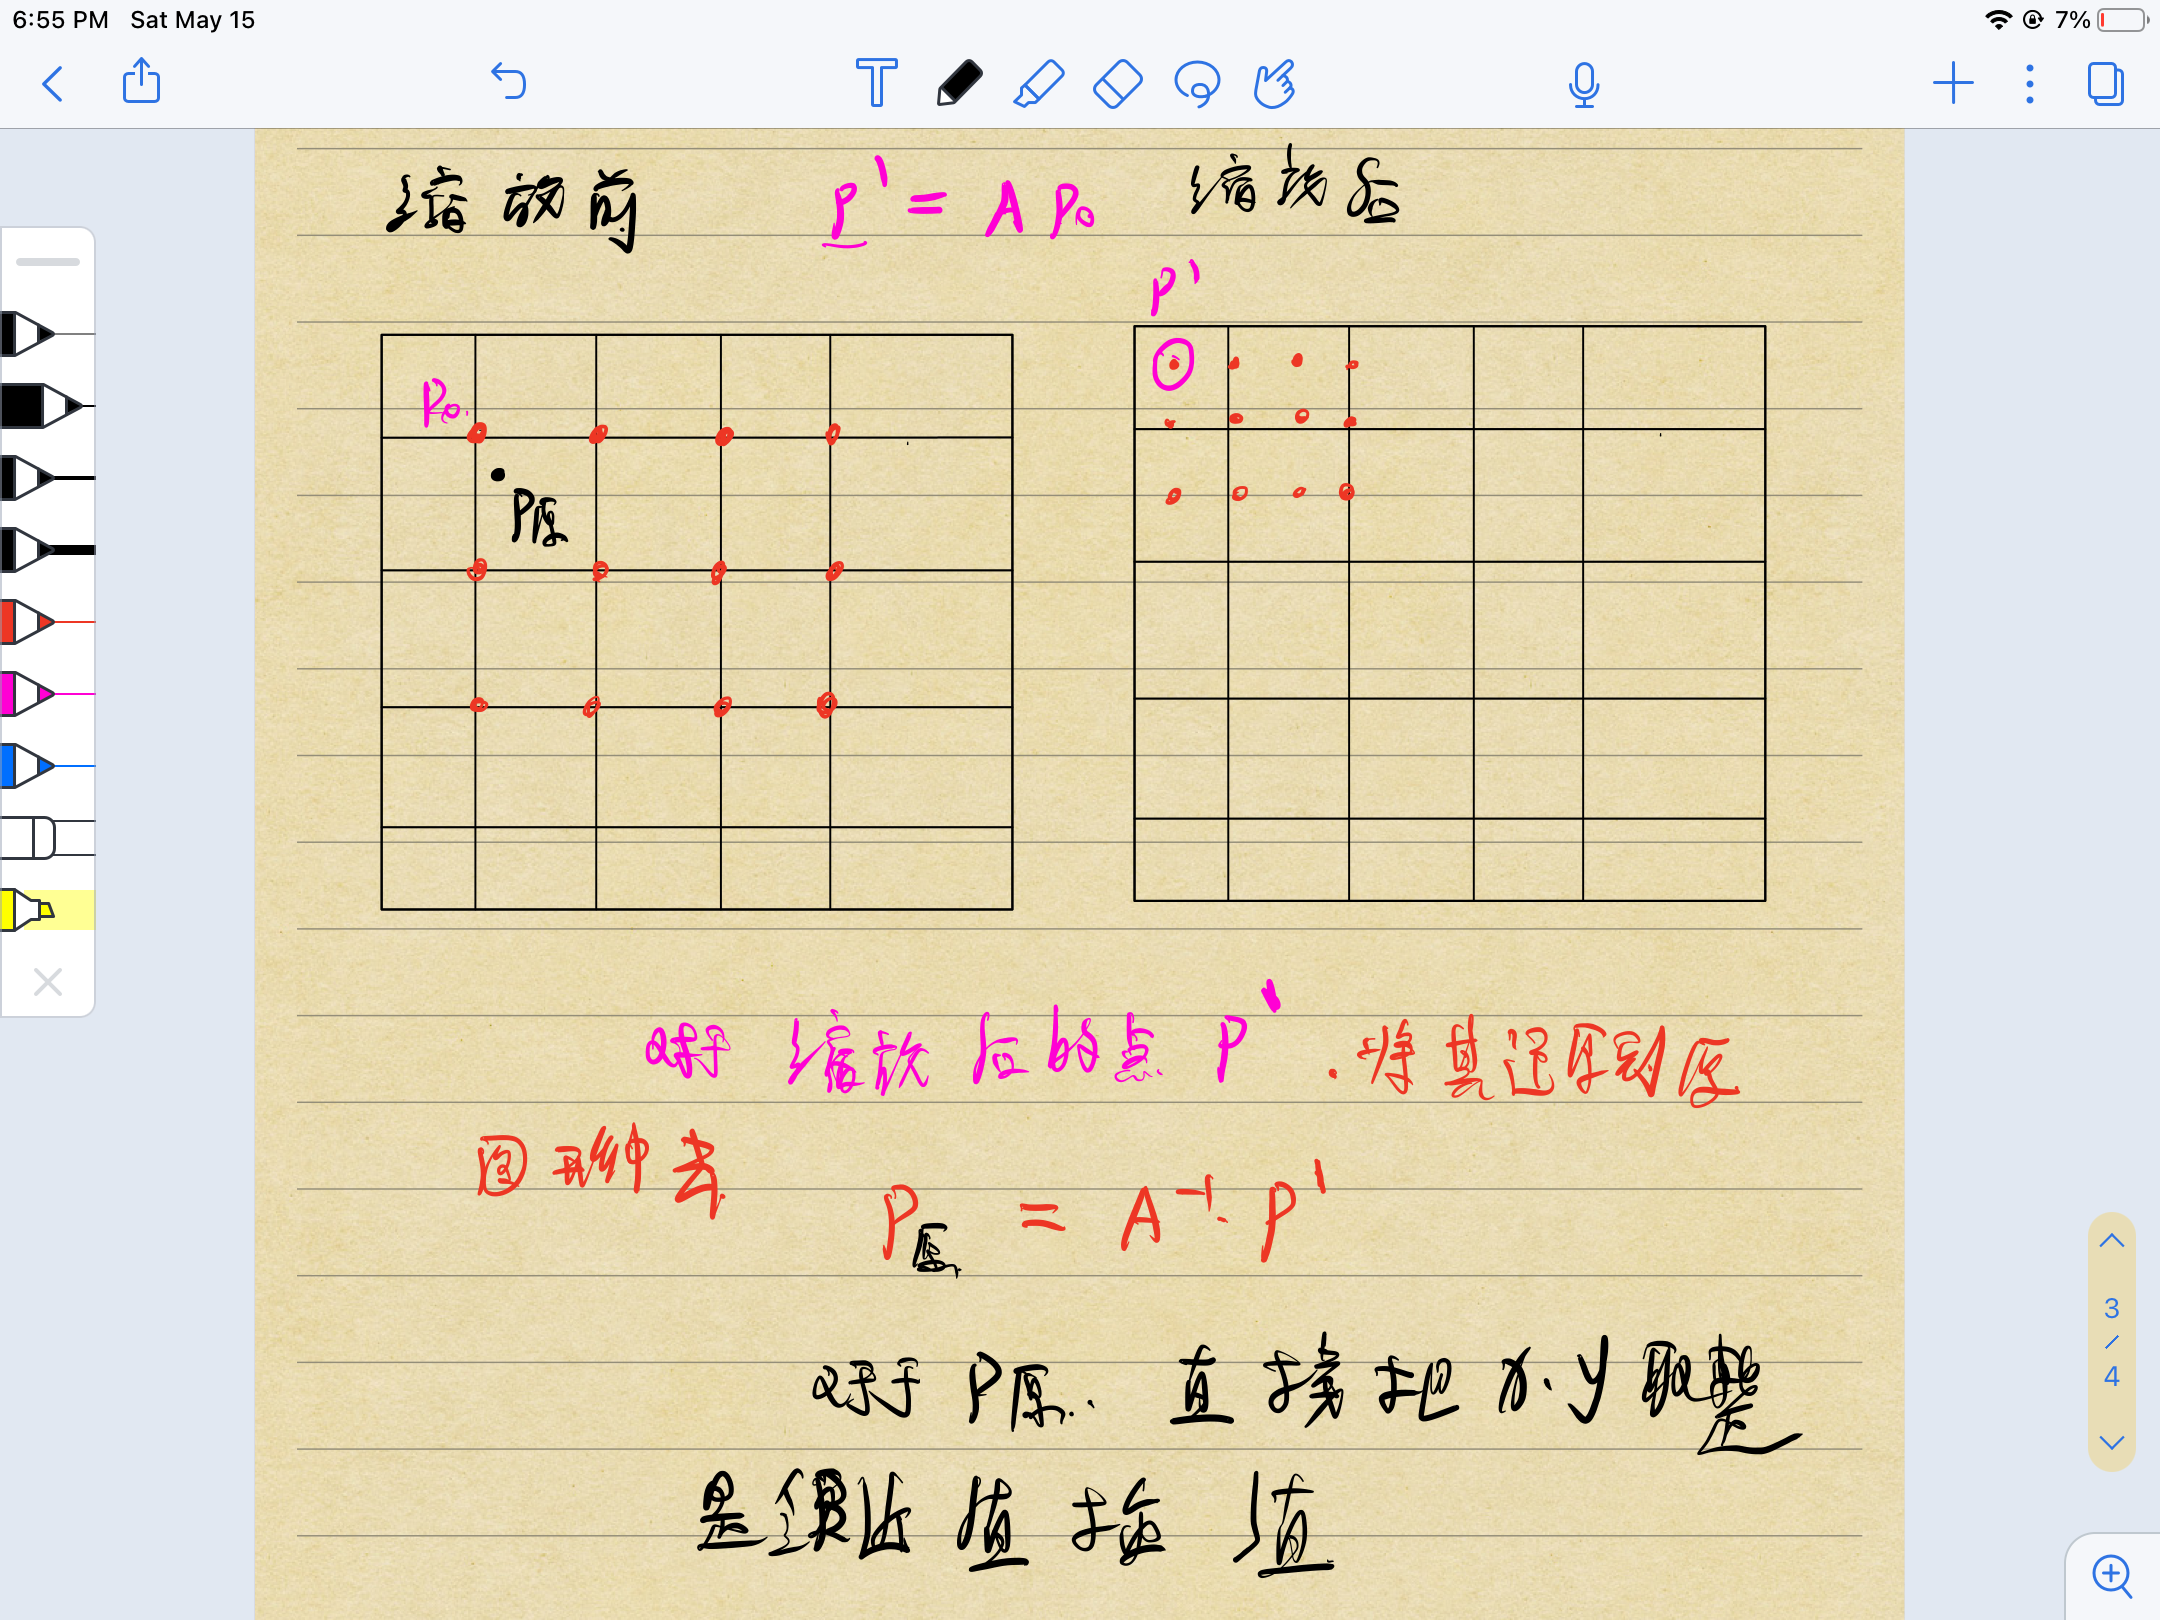 6:55 PM Sat May 15 7%
缩放前 P' = A P₀ 缩放后
P'
P₀
P原
对于 缩放后的点 P' . 将其还原到原
图种去
P原 = A⁻¹ · P'
对于 P原 . 直接把 x、y 取整
是最近值插值
3
/
4